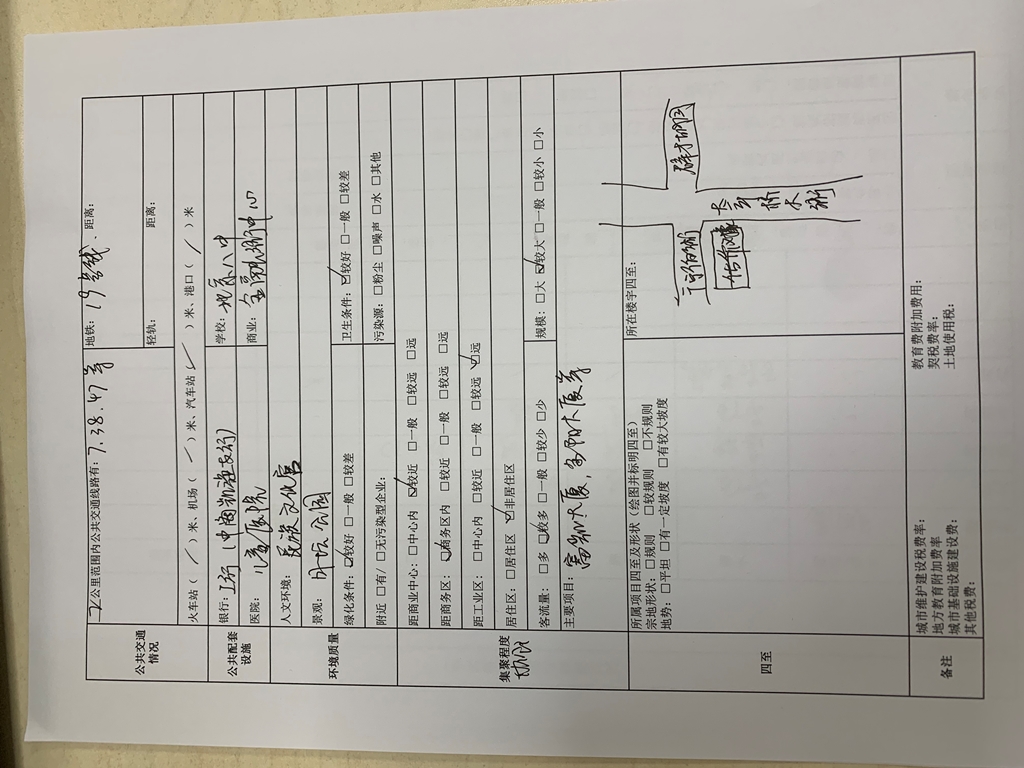 公共交通情况
2公里范围内公共交通线路有：7.38.47等
地铁：19号线、距离：
轻轨： 距离：
火车站（／）米、机场（／）米、汽车站（／）米、港口（／）米
公共配套设施
银行：工行（中商
学校：北京八中
医院：儿童医院
商业：金融街中心
环境质量
人文环境：民族文化宫
景观：月坛公园
绿化条件：☑较好 □一般 □较差
卫生条件：☑较好 □一般 □较差
附近 □有/ □无污染型企业：
污染源：□粉尘 □噪声 □水 □其他
集聚程度
距商业中心：□中心内 ☑较近 □一般 □较远 □远
距商务区：☑商务区内 □较近 □一般 □较远 □远
距工业区：□中心内 □较近 □一般 □较远 ☑远
居住区：□居住区 ☑非居住区
客流量：□多 ☑较多 □一般 □较少 □少
规模：□大 ☑较大 □一般 □较小 □小
主要项目：富凯大厦，
大厦等
四至
所属项目四至及形状（绘图并标明四至）
宗地形状：□规则 □较规则 □不规则
地势：□平坦 □有一定坡度 □有较大坡度
所在楼宇四至：
备注
城市维护建设税费率：
地方教育附加费率
城市基础设施建设费：
其他税费：
教育费附加费用：
契税费率：
土地使用税：